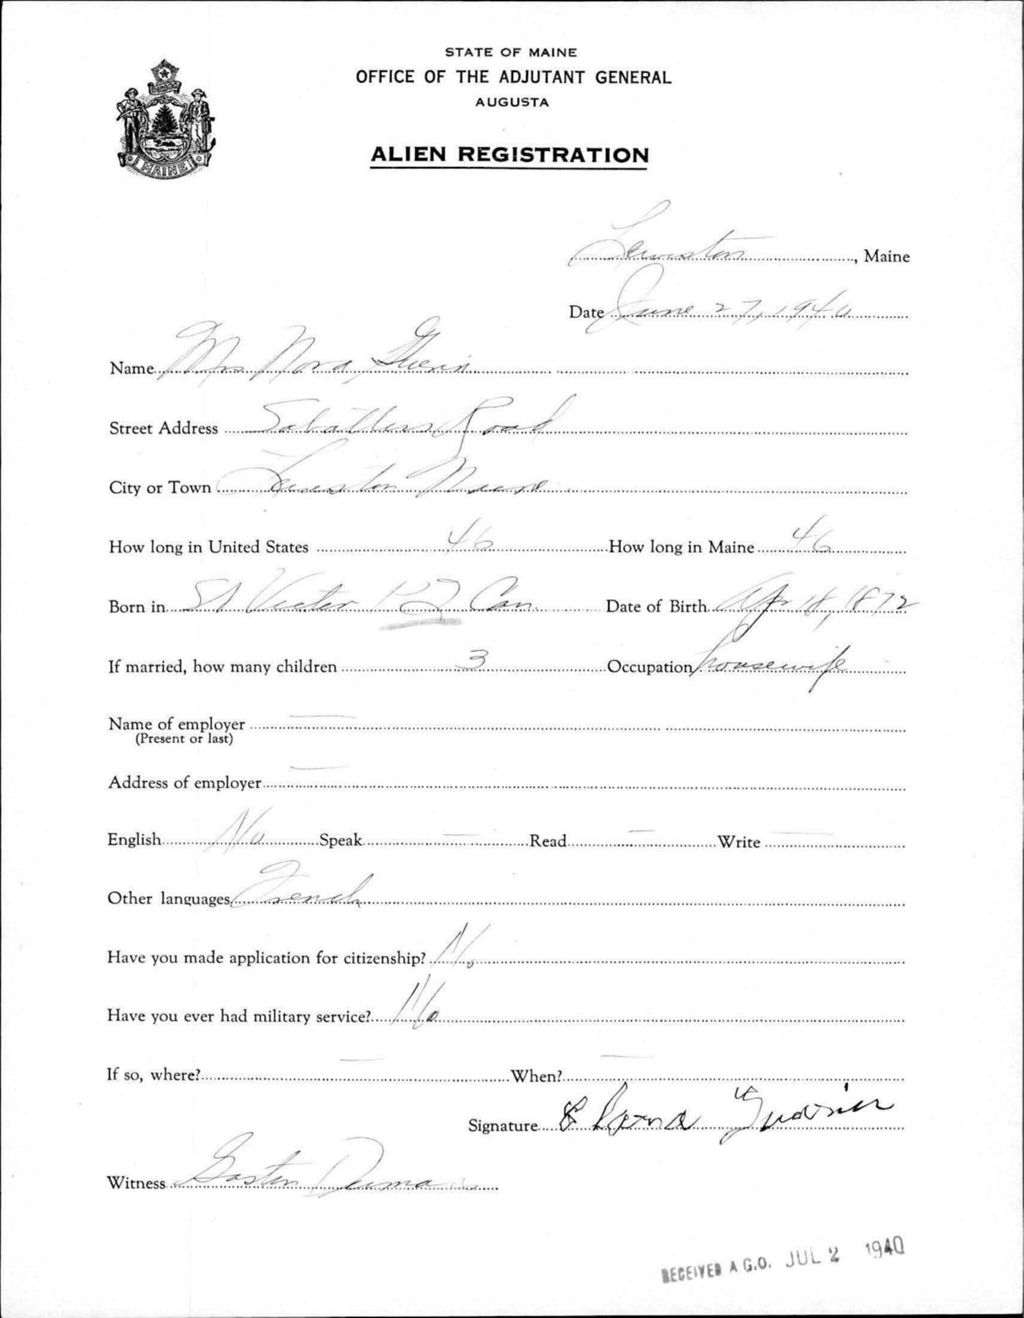 STATE OF MAINE
OFFICE OF THE ADJUTANT GENERAL
AUGUSTA
ALIEN REGISTRATION
MAINE
Lewiston, Maine
Date June 27, 1940
Name Mrs Nora Guerin
Street Address Road
City or Town Lewiston Maine
How long in United States 46 How long in Maine 46
Born in St Victor P Q Can. Date of Birth Apr 18, 1872
If married, how many children 3 Occupation housewife
Name of employer —
(Present or last)
Address of employer —
English No Speak — Read — Write —
Other languages French
Have you made application for citizenship? No
Have you ever had military service? No
If so, where? — When? —
Signature
Witness Gaston
RECEIVED A.G.O. JUL 2 1940